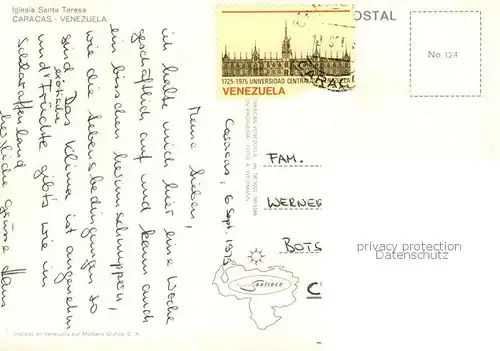 Iglesia Santa Teresa
CARACAS - VENEZUELA
Caracas, 6 Sept. 1975
Meine Lieben,
ich halte mich hier eine Woche
geschäftlich auf und kann auch
ein bisschen herumschnuppern,
wie die Lebensbedingungen so
sind. Das Klima ist angenehm
und Früchte gibt's wie im
Schlaraffenland
herzliche Grüsse Hans
1725-1975 UNIVERSIDAD CENTRAL
VENEZUELA
CARAC
POSTAL
No 124
FAM.
WERNER
BOTS
privacy protection
watermark
ansichtskartenversand.com